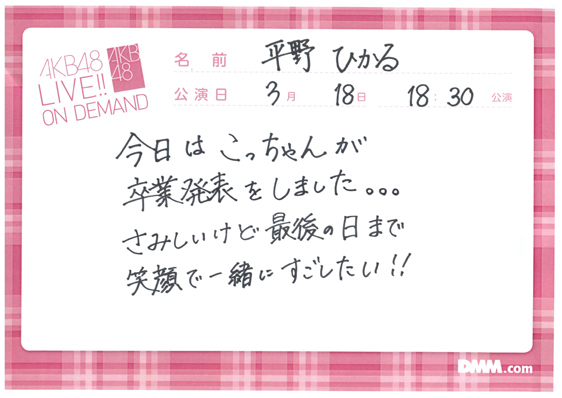 AKB48
LIVE!!
ON DEMAND
AKB
48
名前 平野 ひかる
公演日 3月 18日 18:30 公演
今日は こっちゃんが
卒業発表をしました。。。
さみしいけど 最後の日まで
笑顔で一緒にすごしたい!!
DMM.com